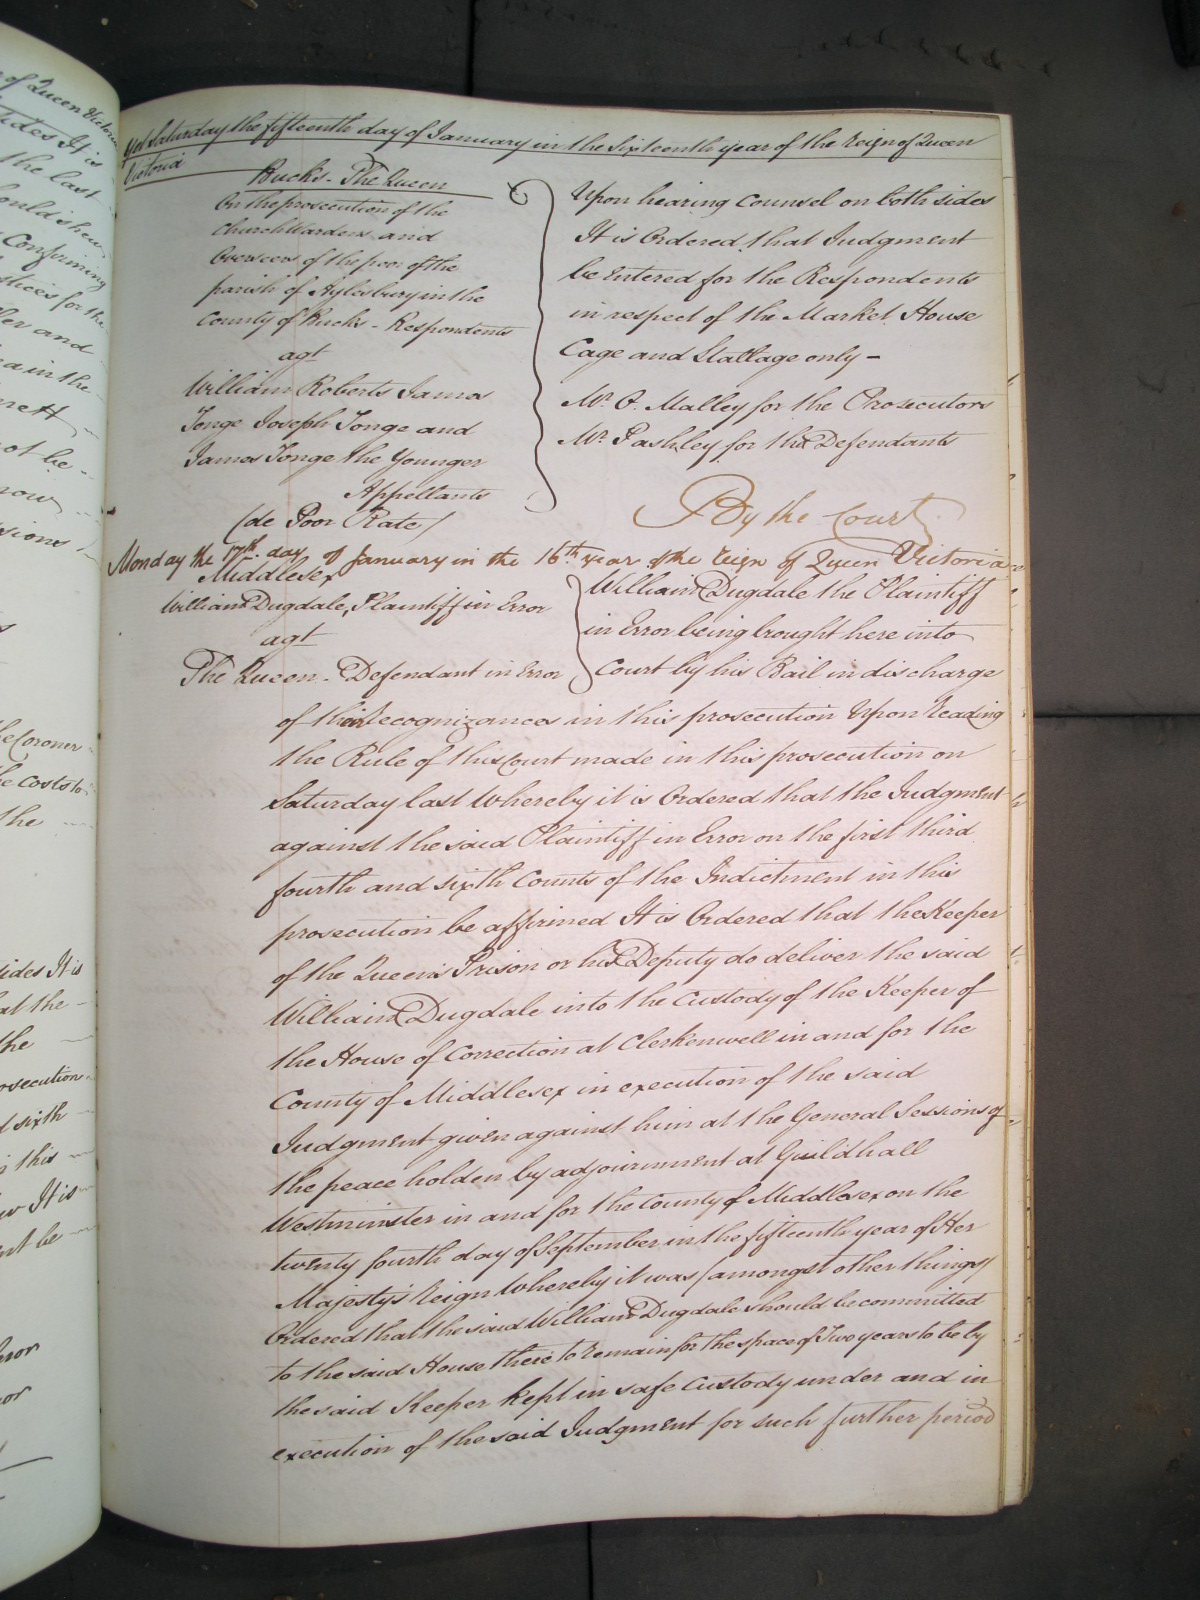 Yet Saturday the fifteenth day of January in the Sixteenth year of the Reign of Queen
Victoria
Bucks - The Queen
On the prosecution of the
Churchwardens and
Overseers of the poor of the
parish of Aylesbury in the
County of Bucks - Respondents
agt
William Roberts James
Tonge Joseph Tonge and
James Tonge the Younger
Appellants
(de Poor Rate)
Upon hearing Counsel on both sides
It is Ordered that Judgment
be Entered for the Respondents
in respect of the Market House
Cage and Stallage only -
Mr. O. Malley for the Prosecutors
Mr. Pashley for the Defendants
By the Court
Monday the 17th. day of January in the 16th year of the Reign of Queen Victoria
Middlesex
William Dugdale, Plaintiff in Error
agt
The Queen - Defendant in Error
William Dugdale the Plaintiff
in Error being brought here into
Court by his Bail in discharge
of their Recognizances in this prosecution Upon Reading
the Rule of this Court made in this prosecution on
Saturday last Whereby it is Ordered that the Judgment
against the said Plaintiff in Error on the first third
fourth and sixth Counts of the Indictment in this
prosecution be affirmed It is Ordered that the Keeper
of the Queen's Prison or his Deputy do deliver the said
William Dugdale into the Custody of the Keeper of
the House of Correction at Clerkenwell in and for the
County of Middlesex in execution of the said
Judgment given against him at the General Sessions of
the peace holden by adjournment at Guildhall
Westminster in and for the County of Middlesex on the
twenty fourth day of September in the fifteenth year of Her
Majesty's Reign Whereby it was (amongst other things)
Ordered that the said William Dugdale should be committed
to the said House there to Remain for the space of Two years to be by
the said Keeper kept in safe Custody under and in
execution of the said Judgment for such further period